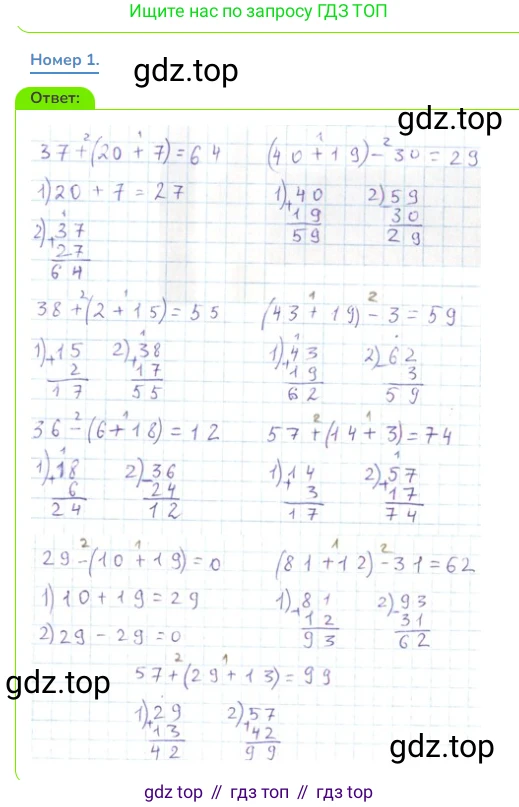 Ищите нас по запросу ГДЗ ТОП
Номер 1.
gdz.top
Ответ:
gdz.top
37+(20+7)=64
2 1
1) 20+7=27
2) 37
+27
64
1
(40+19)-30=29
1 2
1) 40
+19
59
2) 59
30
29
38+(2+15)=55
2 1
1) 15
+2
17
2) 38
+17
55
1
(43+19)-3=59
1 2
1) 43
+19
62
1
2) 62
-3
59
36-(6+18)=12
2 1
1) 18
+6
24
1
2) 36
-24
12
57+(14+3)=74
2 1
1) 14
+3
17
2) 57
+17
74
1
29-(10+19)=0
2 1
1) 10+19=29
2) 29-29=0
(81+12)-31=62
1 2
1) 81
+12
93
2) 93
-31
62
57+(29+13)=99
2 1
gdz.top
1) 29
+13
42
2) 57
+42
99
gdz.top
gdz top // гдз топ // gdz.top